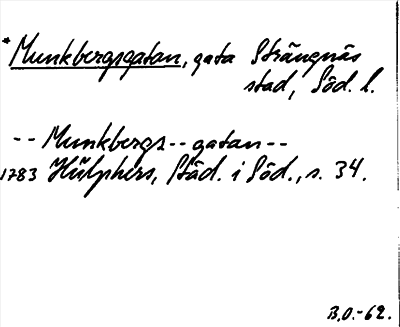 *Munkbergsgatan, gata Strängnäs
stad, Söd. l.
-- Munkbergs--gatan--
1783 Hülphers, Städ. i Söd., s. 34.
B.O.-62.